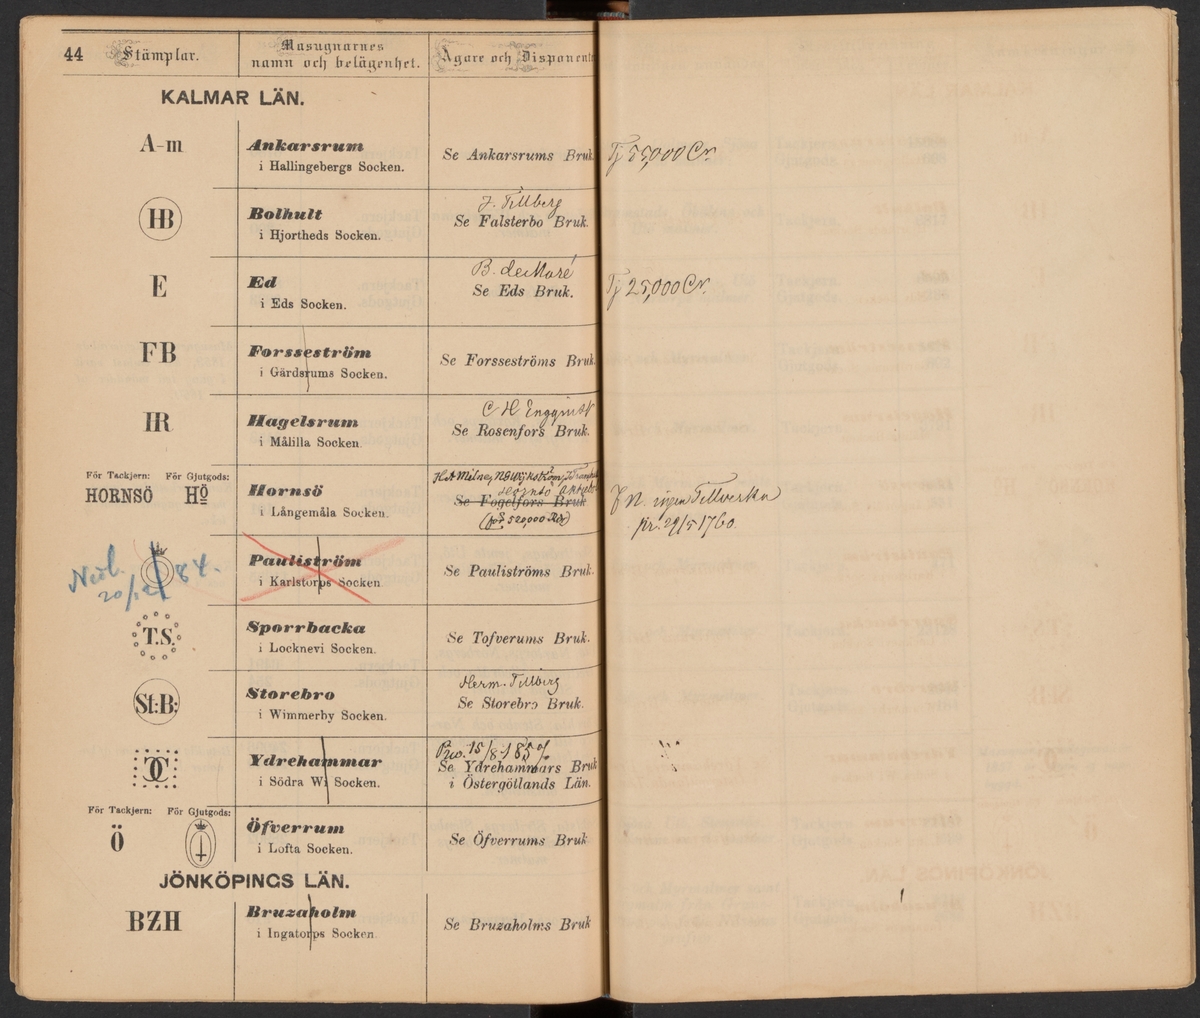 44 Stämplar. Masugnarnes namn och belägenhet. Ägare och Disponent
KALMAR LÄN.
A-m Ankarsrum Se Ankarsrums Bruk Tj 55,000 Cr.
i Hallingebergs Socken.
J. Tillberg
HB Bolhult Se Falsterbo Bruk.
i Hjortheds Socken.
B. deMaré
E Ed Se Eds Bruk. Tj 25,000 Cr.
i Eds Socken.
FB Forsseström Se Forsseströms Bruk
i Gärdsrums Socken.
C H Engqvist
HR Hagelsrum Se Rosenfors Bruk.
i Målilla Socken.
För Tackjern: För Gjutgods:
HORNSÖ HÖ Hornsö Se Fogelfors Bruk
i Långemåla Socken. (för 520,000 Rdr)
ingen Tillverkn
Pauliström Se Pauliströms Bruk.
i Karlstorps Socken.
20/12 84.
T.S. Sporrbacka Se Tofverums Bruk.
i Locknevi Socken.
Herm. Tillberg
St:B: Storebro Se Storebro Bruk.
i Wimmerby Socken.
CC Ydrehammar Se Ydrehammars Bruk
i Södra Wi Socken. i Östergötlands Län.
För Tackjern: För Gjutgods:
Ö Öfverrum Se Öfverrums Bruk
i Lofta Socken.
JÖNKÖPINGS LÄN.
BZH Bruzaholm Se Bruzaholms Bruk
i Ingatorps Socken.